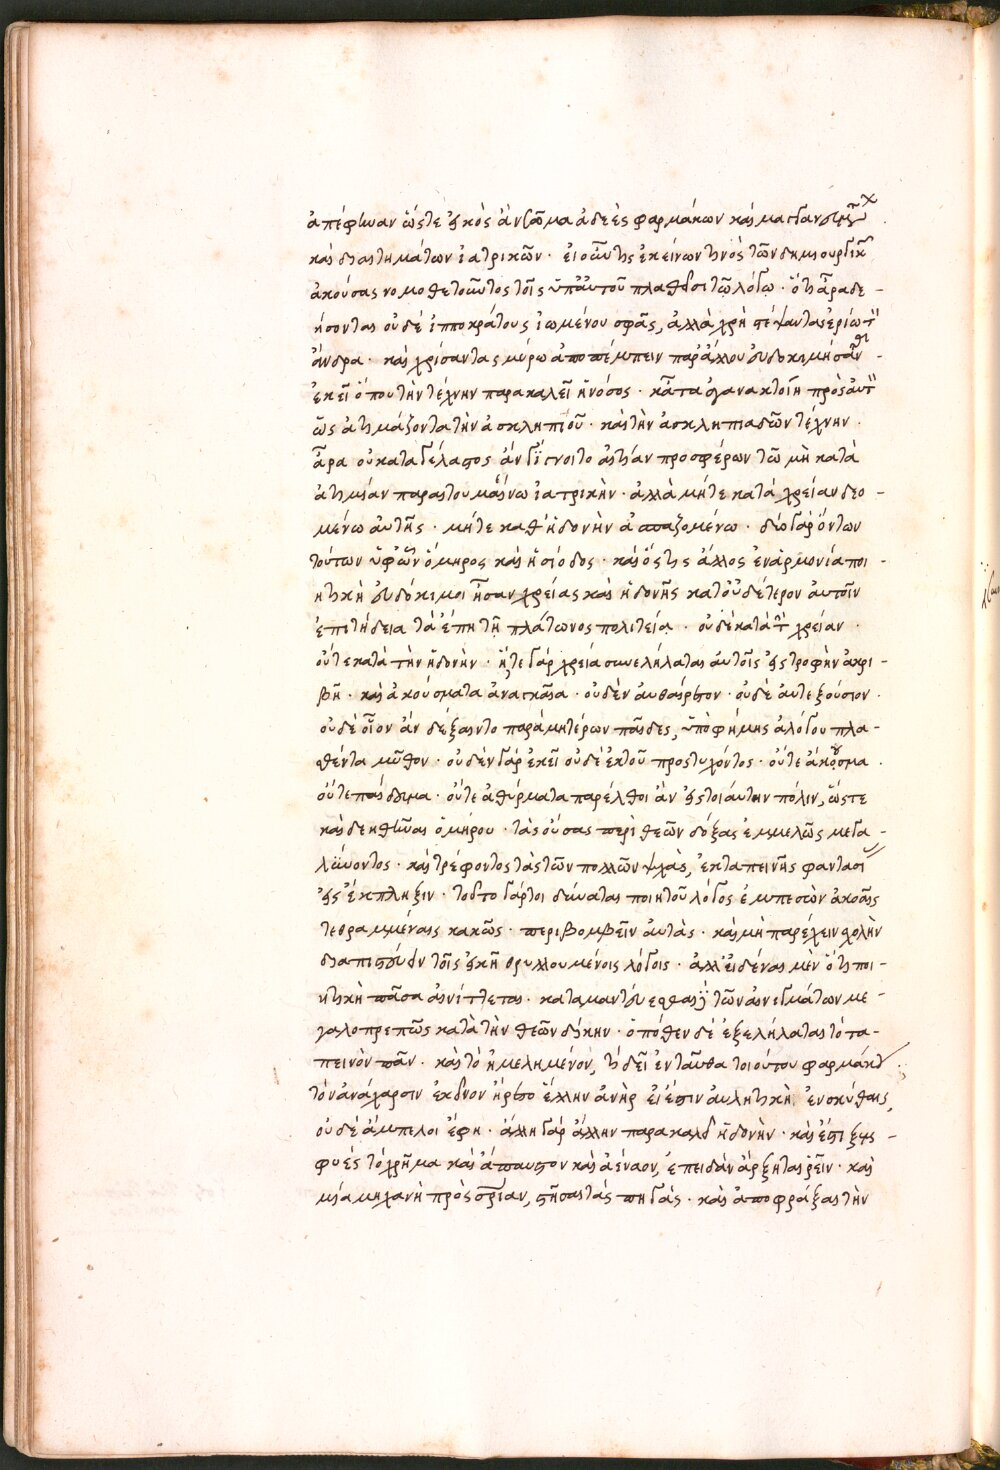 ἀπέφηναν ὥστε εἰκὸς ἂν σῶμα ἀδεὲς φαρμάκων καὶ μαγγανευμάτων
καὶ διαιτημάτων ἰατρικῶν. εἰ οὖν τις ἐκείνων τινὸς τῶν δημιουργικῶν
ἀκούσας νομοθετοῦντος τοῖς ὑπ' αὐτοῦ πλαθεῖσι τῷ λόγῳ. ὅτι ἄρα δε-
ήσονται οὐδὲ ἱπποκράτους ἰωμένου σφᾶς, ἀλλὰ χρὴ στέψαντας ἐρίῳ τὸν
ἄνδρα. καὶ χρίσαντας μύρῳ ἀποπέμπειν παρ' ἄλλους εὐδοκιμήσαντα
ἐκεῖ ὅπου τὴν τέχνην παρακαλεῖ ἡ νόσος. κᾆτα ἀγανακτοίη πρὸς αὐτὸν
ὡς ἀτιμάζοντα τὴν ἀσκληπιοῦ. καὶ τὴν ἀσκληπιαδῶν τέχνην.
ἆρα οὐ καταγέλαστος ἂν γίγνοιτο αἰτίαν προσφέρων τῷ μὴ κατὰ
ἀτιμίαν παραιτουμένῳ ἰατρικὴν. ἀλλὰ μήτε κατὰ χρείαν δεο-
μένῳ αὐτῆς. μήτε καθ' ἡδονὴν ἀσπαζομένῳ. δύο γὰρ ὄντων
τούτων ὑφ' ὧν ὅμηρος καὶ ἡσίοδος. καὶ ὅστις ἄλλος ἐν ἁρμονίᾳ ποι-
ητικῇ εὐδόκιμοι ἦσαν χρείας καὶ ἡδονῆς κατ' οὐδέτερον αὐτοῖν
ἐπιτήδεια τὰ ἔπη τῇ πλάτωνος πολιτείᾳ. οὐδὲ κατὰ τὴν χρείαν.
οὔτε κατὰ τὴν ἡδονήν. ἥτε γὰρ χρεία συνελήλαται αὐτοῖς εἰς τροφὴν ἀκρι-
βῆ. καὶ ἀκούσματα ἀναγκαῖα. οὐδὲν αὐθαίρετον. οὐδὲ αὐτεξούσιον.
οὐδὲ οἷον ἂν δέξαιντο παρὰ μητέρων παῖδες, ὑπὸ φήμης ἀλόγου πλα-
θέντα μῦθον. οὐδὲν γὰρ ἐκεῖ οὐδὲ ἐκ τοῦ προστυχόντος. οὔτε ἄκουσμα.
οὔτε παίδευμα. οὔτε ἀθύρματα παρέλθοι ἂν εἰς τοιαύτην πόλιν, ὥστε
καὶ δεηθῆναι ὁμήρου. τὰς οὔσας περὶ θεῶν δόξας ἐμμελῶς μεγα-
λύνοντος. καὶ τρέφοντος τὰς τῶν πολλῶν ψυχὰς, ἐκ ταπεινῆς φαντασίας
εἰς ἔκπληξιν. τοῦτο γάρ τοι δύναται ποιητοῦ λόγος ἐμπεσὼν ἀκοαῖς
τεθραμμέναις κακῶς. περιβομβεῖν αὐτὰς. καὶ μὴ παρέχειν σχολὴν
διαπιστεύειν τοῖς εἰκῇ θρυλλουμένοις λόγοις. ἀλλ' εἰδέναι μὲν ὅτι ποι-
ητικὴ πᾶσα αἰνίττεται. καταμαντεύεσθαι δὲ τῶν αἰνιγμάτων με-
γαλοπρεπῶς κατὰ τὴν θεῶν δίκην. ὁπόθεν δὲ ἐξελήλαται τὸ τα-
πεινὸν πᾶν. καὶ τὸ ἠμελημένον, τί δεῖ ἐνταῦθα τοιούτου φαρμάκου
τὸν ἀνάχαρσιν ἐκεῖνον ἤρετο ἕλλην ἀνὴρ εἰ ἔστιν αὐλητικὴ ἐν σκύθαις,
οὐδὲ ἄμπελοι ἔφη. ἄλλη γὰρ ἄλλην παρακαλεῖ ἡδονὴν. καὶ ἔστι ξυμ-
φυὲς τὸ χρῆμα καὶ ἄπαυστον καὶ ἀέναον, ἐπειδὰν ἄρξηται ῥεῖν. καὶ
μία μηχανὴ πρὸς σωτηρίαν, στῆσαι τὰς πηγὰς. καὶ ἀποφράξαι τὴν